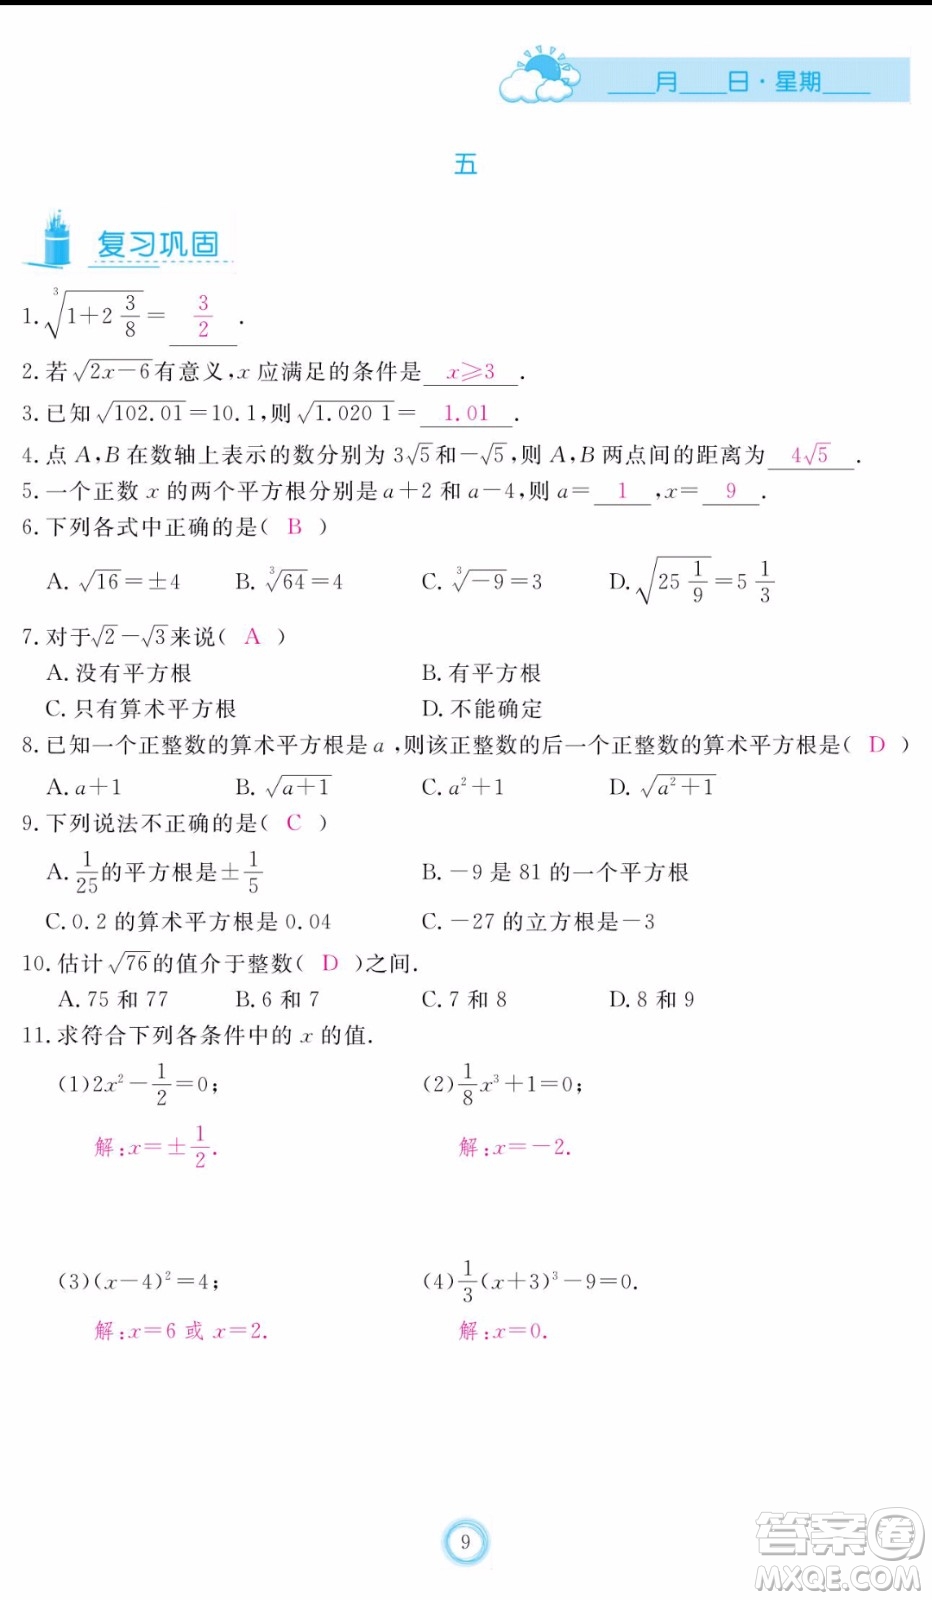 ____月____日·星期____
五
复习巩固
1. ∛(1+2 3/8) = 3/2 .
2. 若 √(2x−6) 有意义,x 应满足的条件是 x≥3 .
3. 已知 √102.01 = 10.1,则 √1.020 1 = 1.01 .
4. 点 A,B 在数轴上表示的数分别为 3√5 和 −√5,则 A,B 两点间的距离为 4√5 .
5. 一个正数 x 的两个平方根分别是 a+2 和 a−4,则 a= 1 ,x= 9 .
6. 下列各式中正确的是( B )
A. √16=±4 B. ∛64=4 C. ∛−9=3 D. √(25 1/9)=5 1/3
7. 对于 √2−√3 来说( A )
A. 没有平方根 B. 有平方根
C. 只有算术平方根 D. 不能确定
8. 已知一个正整数的算术平方根是 a ,则该正整数的后一个正整数的算术平方根是( D )
A. a+1 B. √(a+1) C. a²+1 D. √(a²+1)
9. 下列说法不正确的是( C )
A. 1/25 的平方根是 ±1/5 B. −9 是 81 的一个平方根
C. 0.2 的算术平方根是 0.04 C. −27 的立方根是−3
10. 估计 √76 的值介于整数( D )之间.
A. 75 和 77 B. 6 和 7 C. 7 和 8 D. 8 和 9
11. 求符合下列各条件中的 x 的值.
(1) 2x²−1/2=0; (2) 1/8 x³+1=0;
解:x=±1/2. 解:x=−2.
(3) (x−4)²=4; (4) 1/3 (x+3)³−9=0.
解:x=6 或 x=2. 解:x=0.
9
答案卷
MXQE.COM